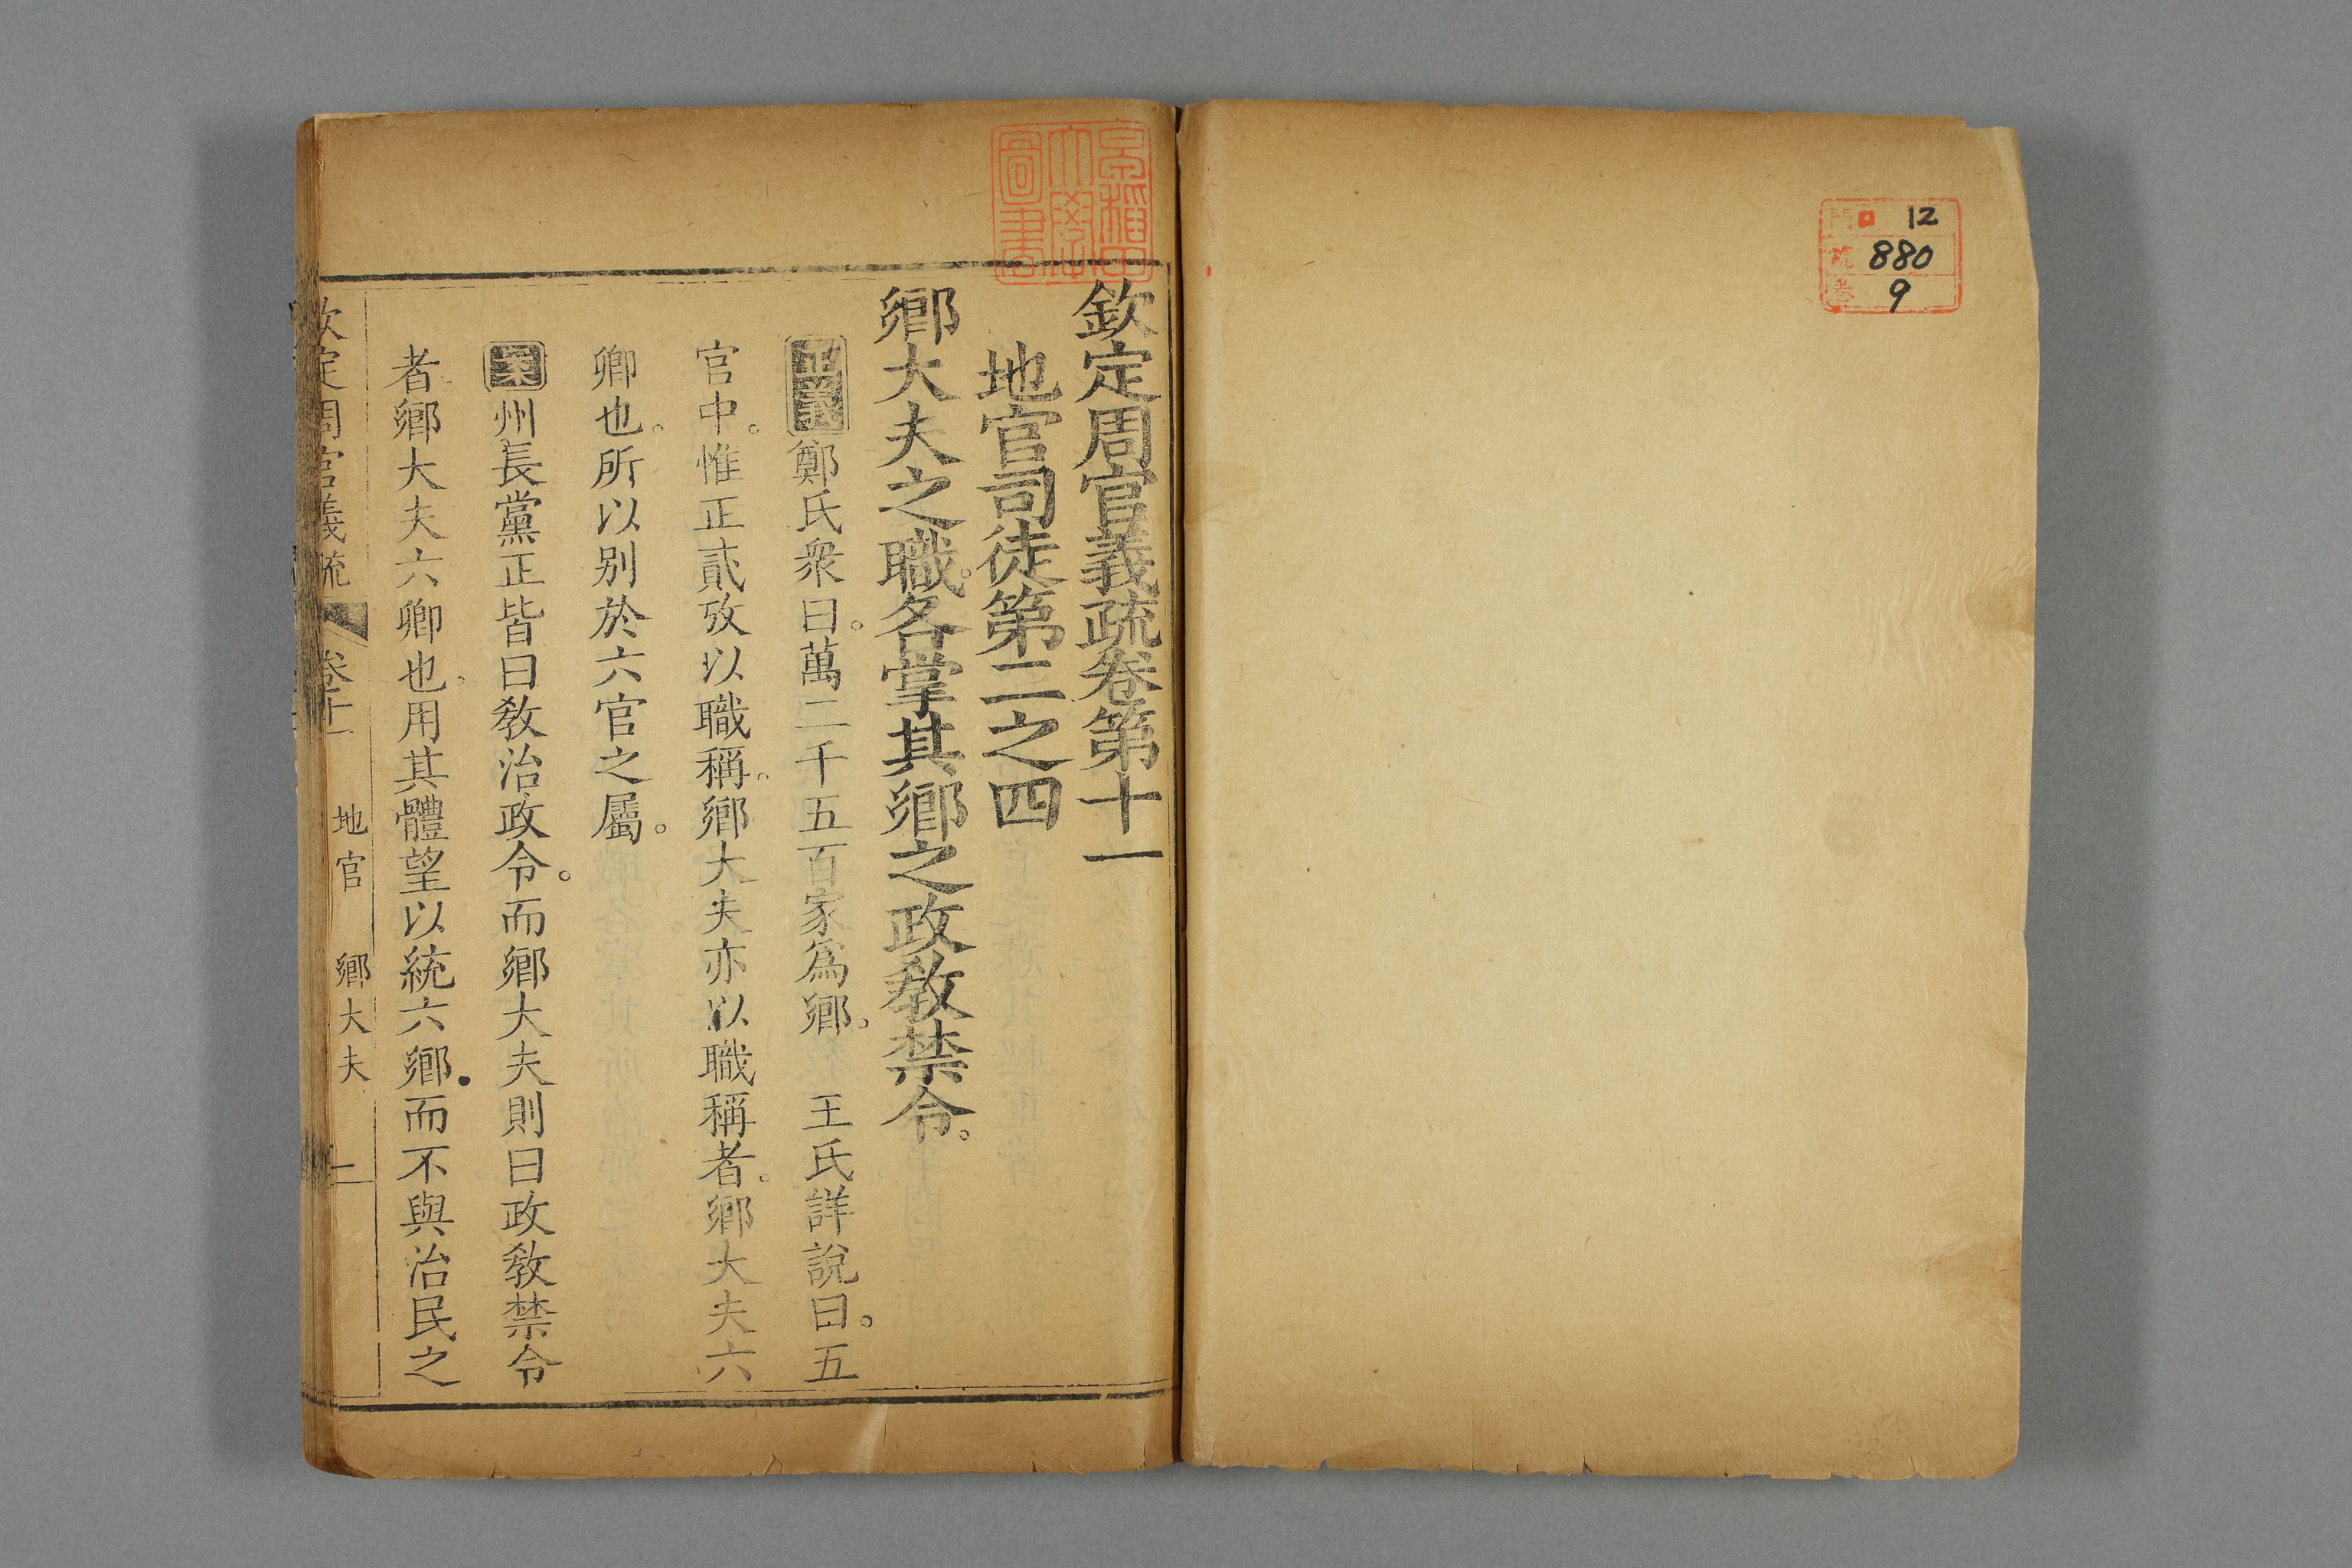 門 ロ 12
號 880
卷 9
早稲田
大學
圖書
欽定周官義疏卷第十一
地官司徒第二之四
鄉大夫之職。各掌其鄉之政教禁令。
正義鄭氏衆曰。萬二千五百家爲鄉。 王氏詳說曰。五
官中。惟正貳攷以職稱。鄉大夫亦以職稱者。鄉大夫六
卿也。所以别於六官之屬。
案州長黨正皆曰教治政令。而鄉大夫則曰政教禁令
者。鄉大夫六卿也。用其體望以統六鄉。而不與治民之
欽定周官義疏 卷十一 地官 鄉大夫 一